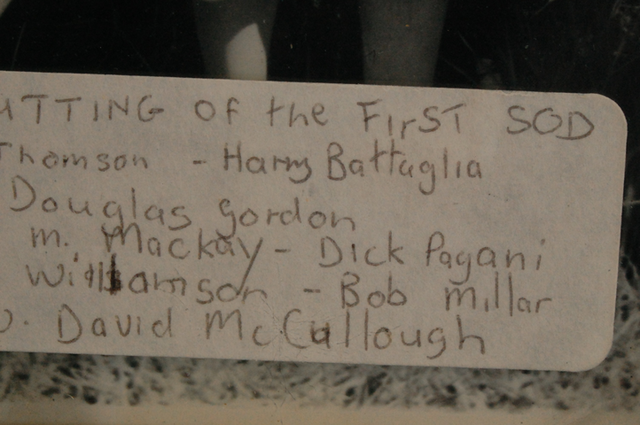 UTTING OF the FIrST SOD
Thomson - Harry Battaglia
Douglas Gordon
m. Mackay - Dick Pagani
Williamson - Bob Millar
David McCullough